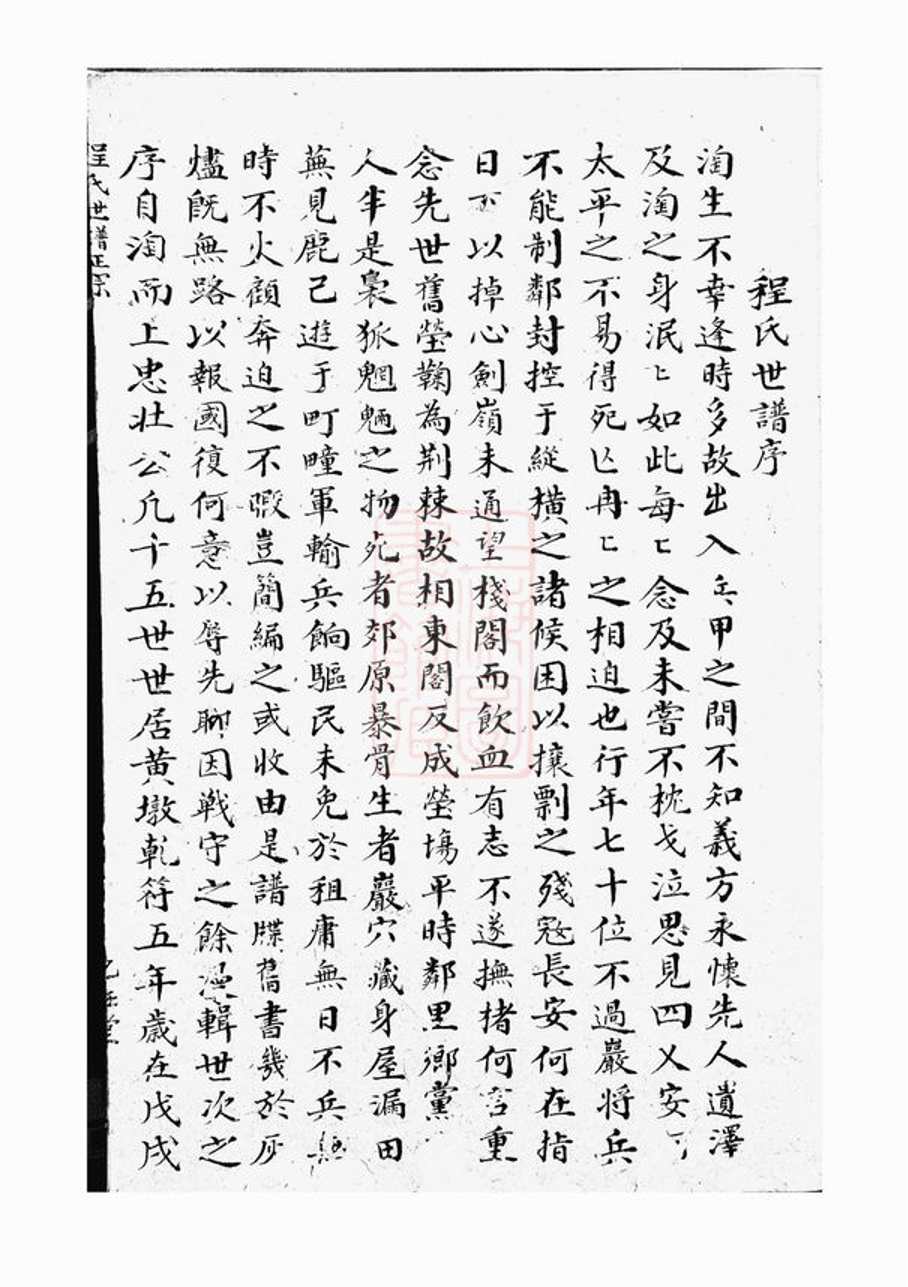 程氏世譜序
淘生不幸逢時多故出入兵甲之間不知義方永懷先人遺澤
及淘之身泯〻如此每〻念及未嘗不枕戈泣思見四乂安
太平之不易得死亾冉〻之相迫也行年七十位不過巖將兵
不能制鄰封控于縱橫之諸候困以攘剽之殘宼長安何在指
日可以掉心劍嶺未通望棧閣而飲血有志不遂撫楮何言重
念先世舊塋鞠為荆棘故相東閣反成塋塲平時鄰里鄉黨
人半是梟狐魍魎之物死者郊原暴骨生者巖穴藏身屋漏田
蕪見鹿己遊于町疃軍輸兵餉驅民未免於租庸無日不兵
時不火顧奔迫之不暇豈簡編之或收由是譜牒舊書幾於灰
燼既無路以報國復何意以辱先聊因戰守之餘漫輯世次之
序自淘而上忠壯公凢十五世世居黄墩乾符五年歲在戊戌
程氏世譜正宗